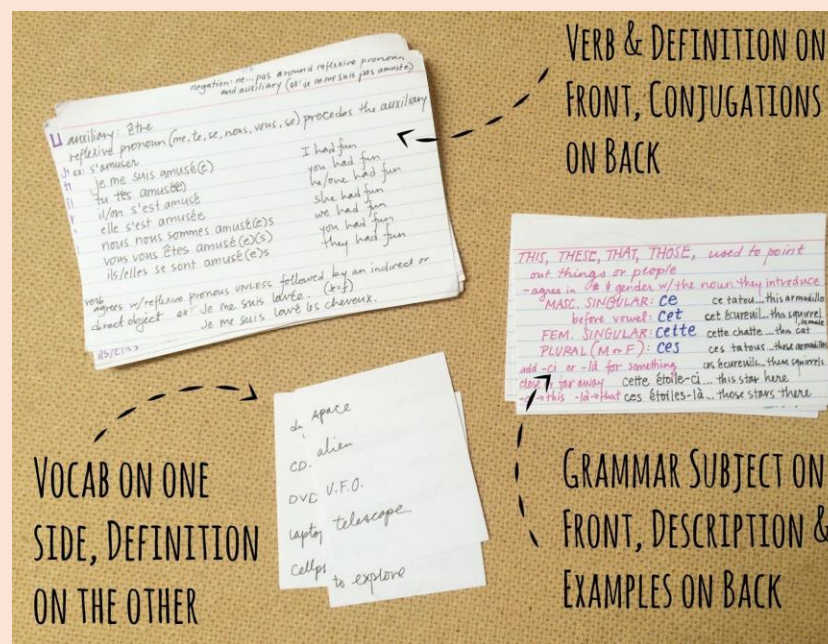 VERB & DEFINITION ON
FRONT, CONJUGATIONS
ON BACK
negation: ne...pas around reflexive pronoun
and auxiliary (ex: je ne me suis pas amusée)
auxiliary: être
reflexive pronoun (me, te, se, nous, vous, se) precedes the auxiliary
ex: s'amuser
je me suis amusé(e) I had fun
tu t'es amusé(e) you had fun
il/on s'est amusé he/one had fun
elle s'est amusée she had fun
nous nous sommes amusé(e)s we had fun
vous vous êtes amusé(e)(s) you had fun
ils/elles se sont amusé(e)s they had fun
verb
agrees w/reflexive pronoun UNLESS followed by an indirect or
direct object ex: Je me suis lavée. (k=f)
Je me suis lavé les cheveux.
ils/elles
THIS, THESE, THAT, THOSE, used to point
out things or people
-agree in # & gender w/ the noun they introduce
MASC. SINGULAR: ce ce tatou...this armadillo
before vowel: cet cet écureuil...this squirrel
FEM. SINGULAR: cette cette chatte...this cat
female
PLURAL (M or F): ces ces tatous...these armadillos
ces écureuils...these squirrels
add -ci or -là for something
close far away cette étoile-ci...this star here
-ci→this -là→that ces étoiles-là...those stars there
VOCAB ON ONE
SIDE, DEFINITION
ON THE OTHER
di
CD.
DVD
laptop
cellph
space
alien
U.F.O.
telescope
to explore
GRAMMAR SUBJECT ON
FRONT, DESCRIPTION &
EXAMPLES ON BACK